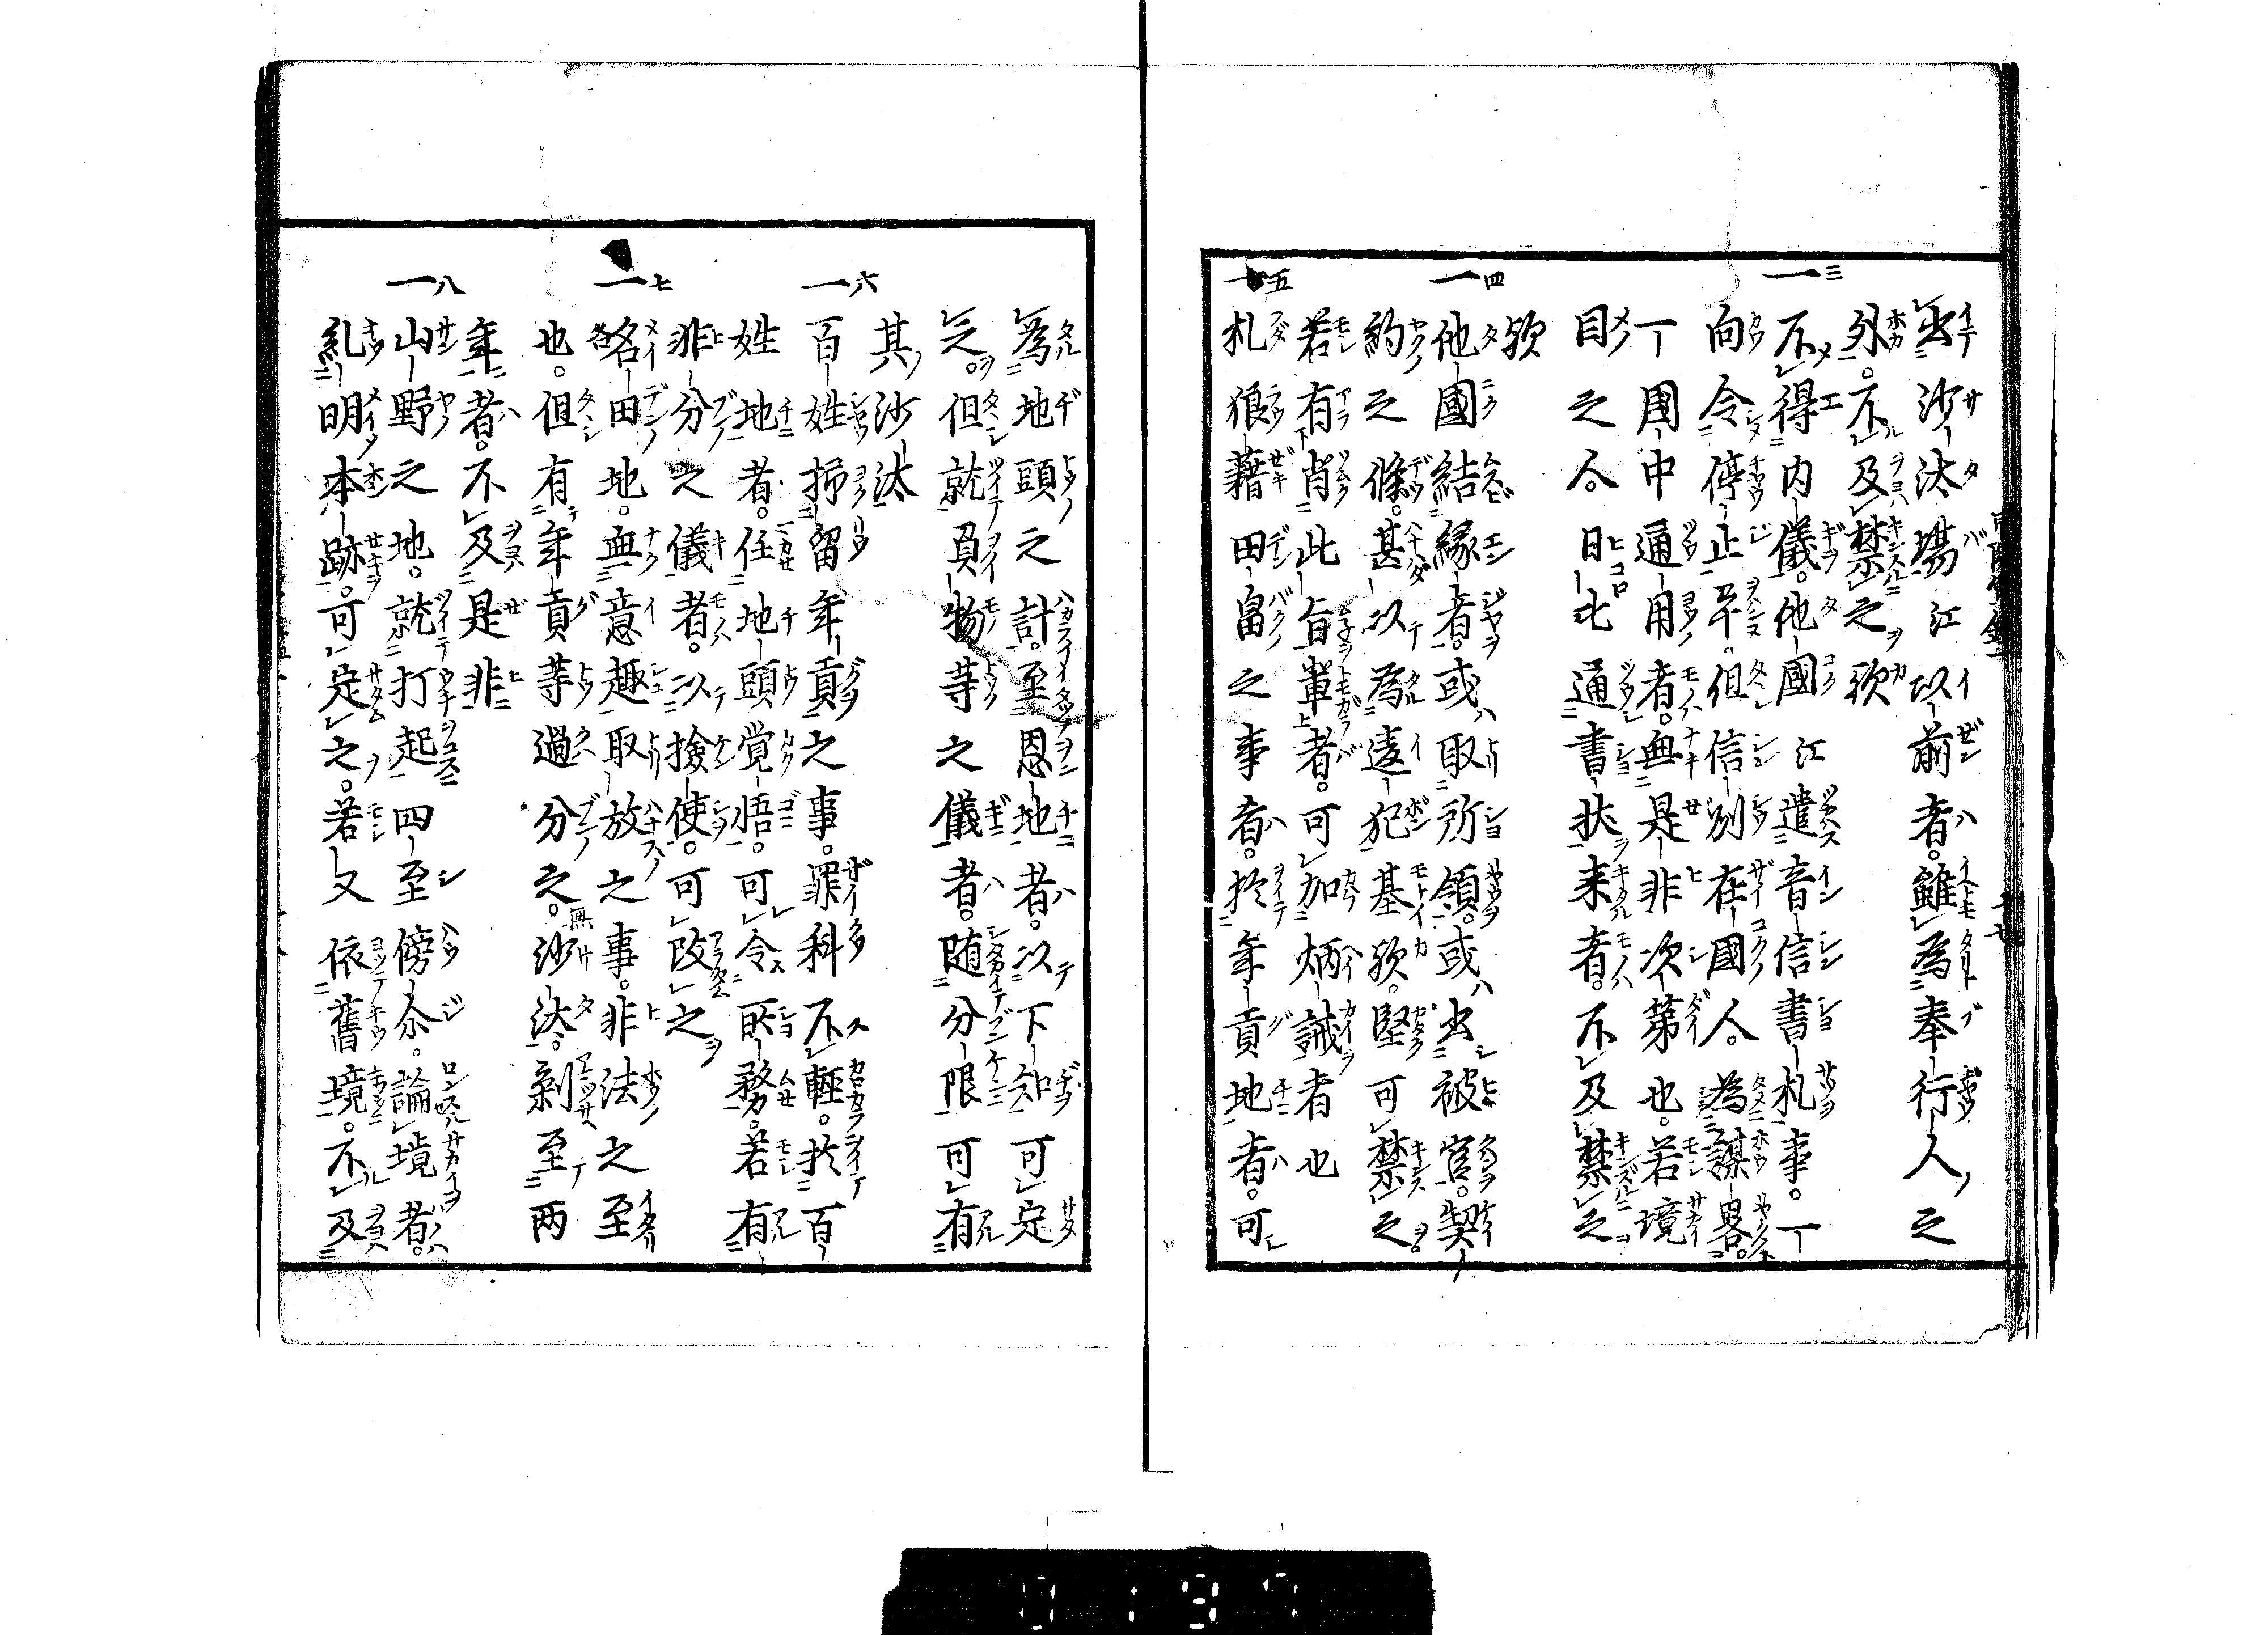 出沙汰場江以前者。雖為奉行人之
外。不及禁之歟
一三 不得内儀。他國江遣音信書札事。一
向令停止畢。但信州在國人。為謀畧。
一國中通用者。無是非次第也。若境
目之人。日比通書状来者。不及禁之
歟
一四 他國結緣者。或ハ取所領。或ハ出被官。契
約之條。甚以為違犯基歟。堅可禁之。
若有背此旨輩者。可加炳誡者也
一五 札狼藉田畠之事者。於年貢地者。可
為地頭之計。至恩地者。以下知可定
之。但就負物等之儀者。随分限可有
其沙汰
一六 百姓拘留年貢之事。罪科不輕。於百
姓地者。任地頭覚悟。可令所務。若有
非分之儀者。以撿使。可改之
一七 名田地。無意趣取放之事。非法之至
也。但有年貢等過分之。無沙汰。剰至両
年者。不及是非
一八 山野之地。就打起四至傍尓。論境者。
糺明本跡。可定之。若又依舊境。不及